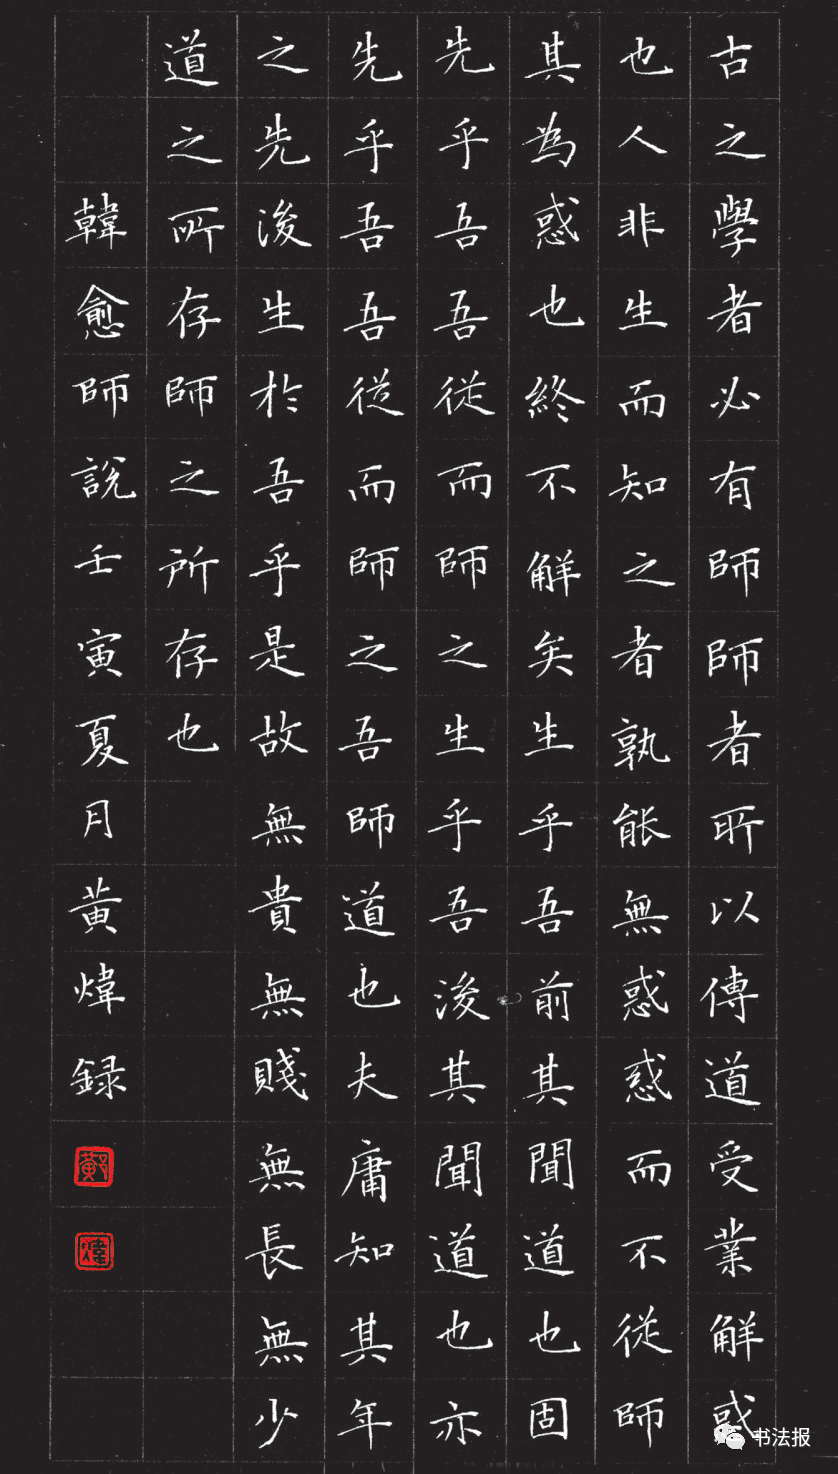 古之學者必有師師者所以傳道受業解惑
也人非生而知之者孰能無惑惑而不從師
其為惑也終不解矣生乎吾前其聞道也固
先乎吾吾從而師之生乎吾後其聞道也亦
先乎吾吾從而師之吾師道也夫庸知其年
之先後生於吾乎是故無貴無賤無長無少
道之所存師之所存也
韓愈師說壬寅夏月黄煒録
煒
书法报